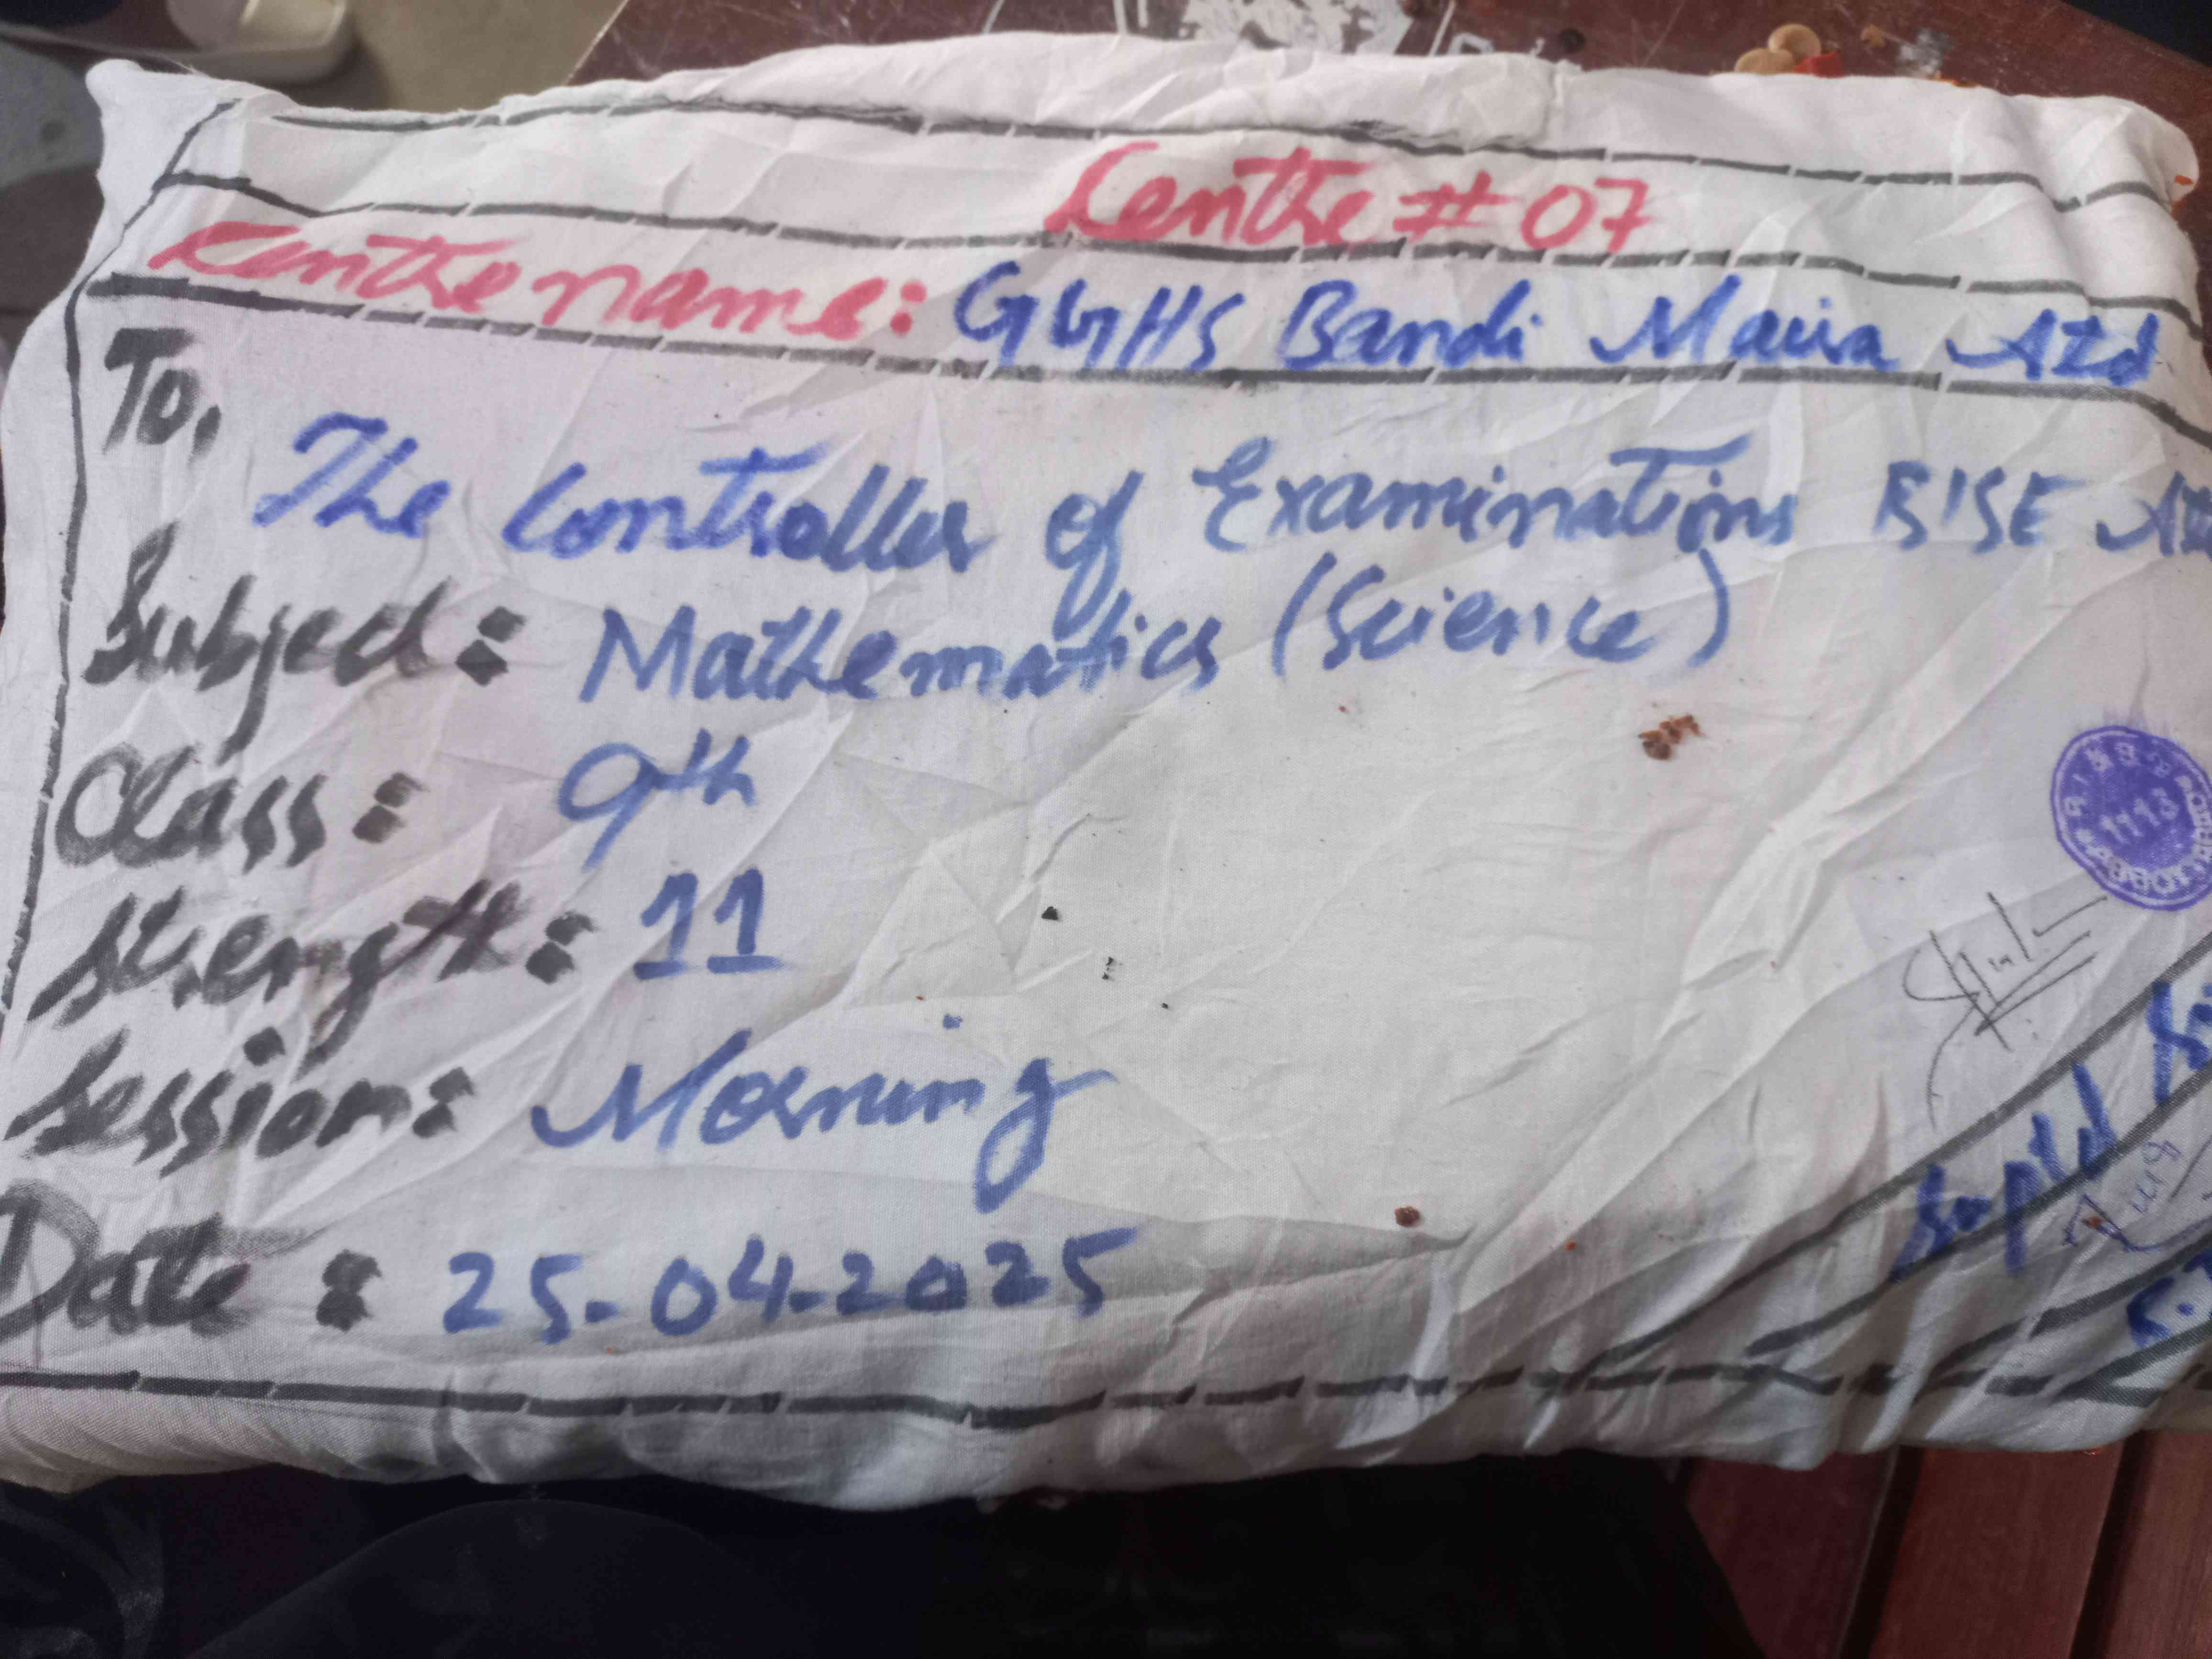 Centre # 07
Centre name: GGHS Bandi Maira Atd
To,
The Controller of Examinations BISE
Subject: Mathematics (Science)
Class: 9th
Strength: 11
Session: Morning
Date: 25-04-2025
1113
Suptd